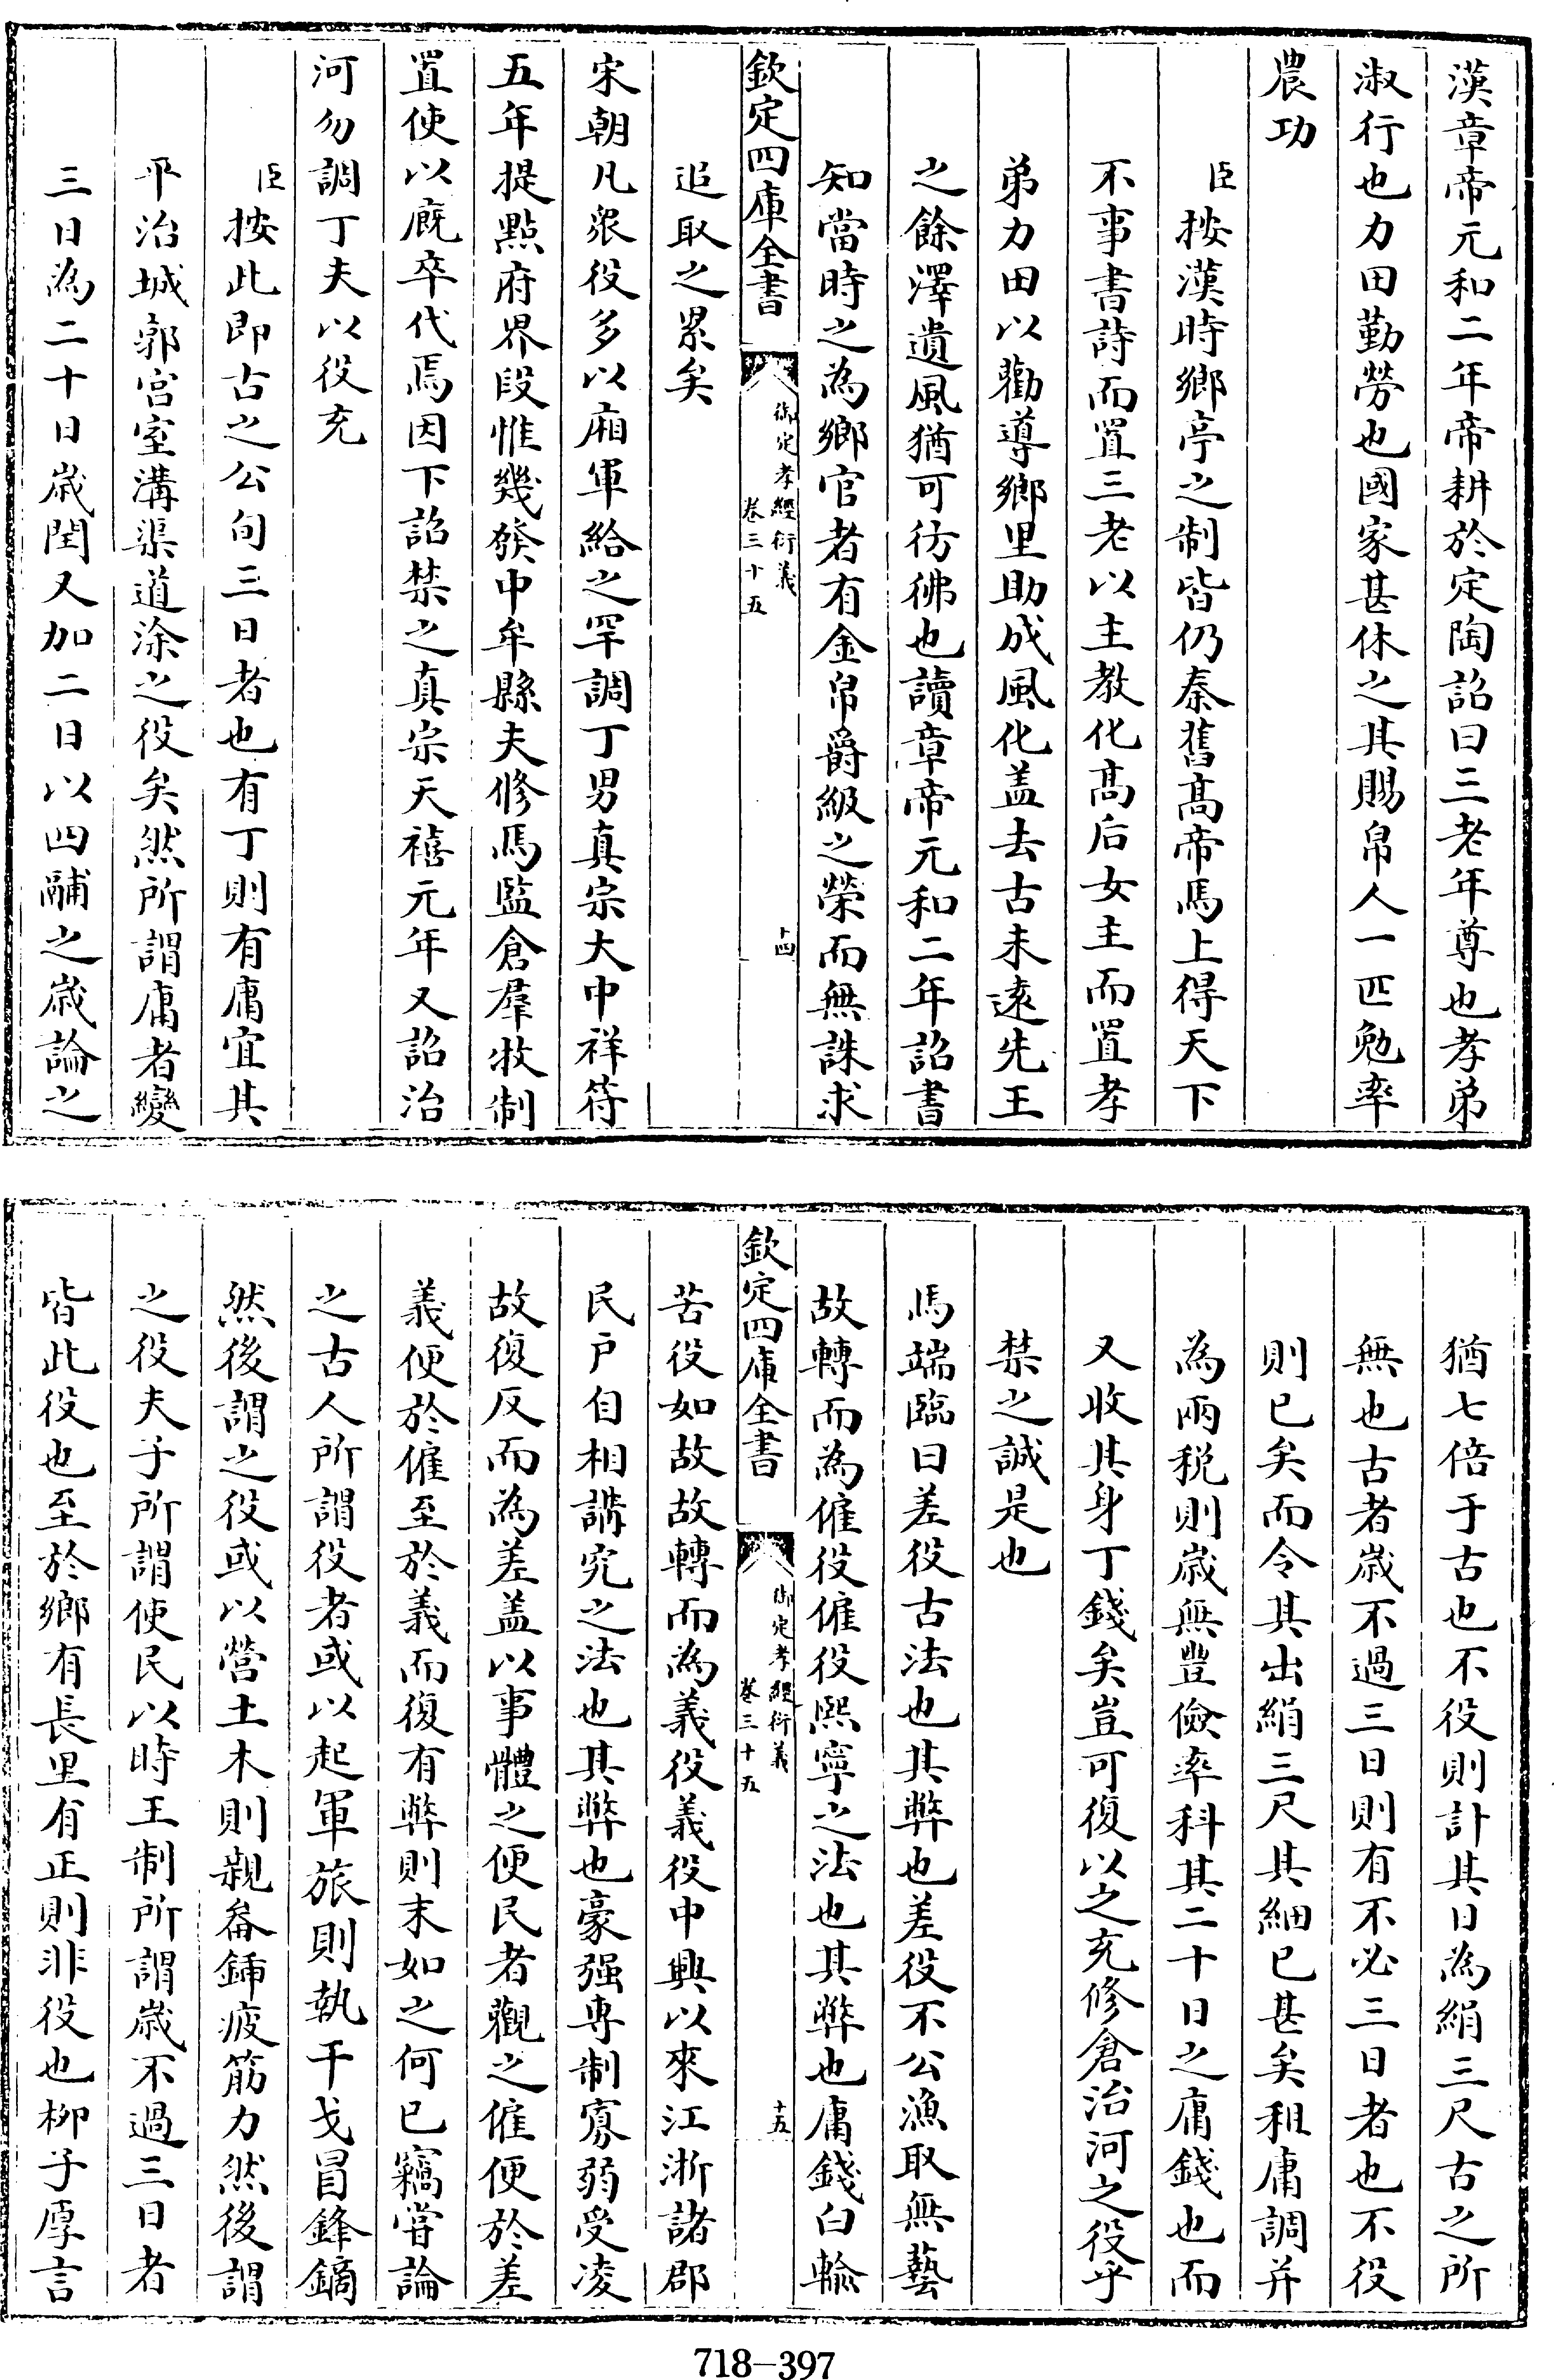 漢章帝元和二年帝耕於定陶詔曰三老年尊也孝弟
淑行也力田勤勞也國家甚休之其賜帛人一匹勉率
農功
臣按漢時鄉亭之制皆仍秦舊髙帝馬上得天下
不事書詩而置三老以主教化髙后女主而置孝
弟力田以勸導鄉里助成風化盖去古未逺先王
之餘澤遺風猶可彷彿也讀章帝元和二年詔書
知當時之為鄉官者有金帛爵級之榮而無誅求
欽定四庫全書
御定孝經衍義
卷三十五
十四
追取之累矣
宋朝凡衆役多以廂軍給之罕調丁男真宗大中祥符
五年提點府界段惟幾發中牟縣夫修馬監倉羣牧制
置使以廐卒代焉因下詔禁之真宗天禧元年又詔治
河勿調丁夫以役充
臣按此即古之公旬三日者也有丁則有庸宜其
平治城郭宫室溝渠道涂之役矣然所謂庸者變
三日為二十日歲閏又加二日以四鬴之歲論之
猶七倍于古也不役則計其日為絹三尺古之所
無也古者歲不過三日則有不必三日者也不役
則已矣而令其出絹三尺其細已甚矣租庸調并
為兩税則歲無豐儉率科其二十日之庸錢也而
又收其身丁錢矣豈可復以之充修倉治河之役乎
禁之誠是也
馬端臨曰差役古法也其弊也差役不公漁取無藝
故轉而為僱役僱役熙寧之法也其弊也庸錢白輸
欽定四庫全書
御定孝經衍義
卷三十五
十五
苦役如故故轉而為義役義役中興以來江浙諸郡
民户自相講究之法也其弊也豪强専制寡弱受凌
故復反而為差盖以事體之便民者觀之僱便於差
義便於僱至於義而復有弊則末如之何已竊嘗論
之古人所謂役者或以起軍旅則執干戈冒鋒鏑
然後謂之役或以營土木則親畚鍤疲筋力然後謂
之役夫子所謂使民以時王制所謂歲不過三日者
皆此役也至於鄉有長里有正則非役也栁子厚言
718-397